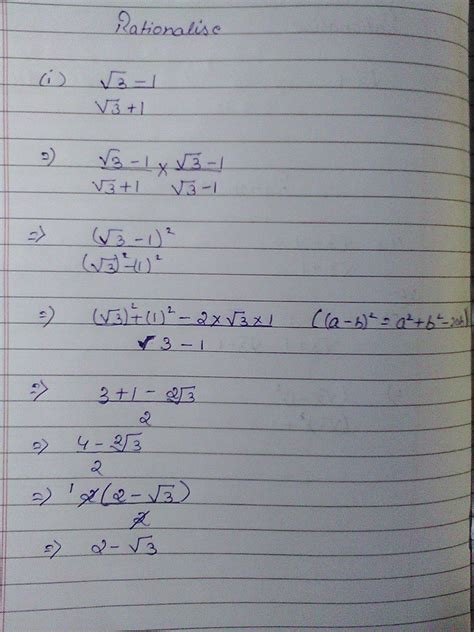 Rationalise
(i) √3 - 1
√3 + 1
⇒) √3 - 1 × √3 - 1
√3 + 1 √3 - 1
⇒) (√3 - 1)²
(√3)² - (1)²
⇒) (√3)² + (1)² - 2 × √3 × 1 ((a - b)² = a² + b² - 2ab)
3 - 1
⇒) 3 + 1 - 2√3
2
⇒) 4 - 2√3
2
⇒) 1 2(2 - √3)
2
⇒) 2 - √3